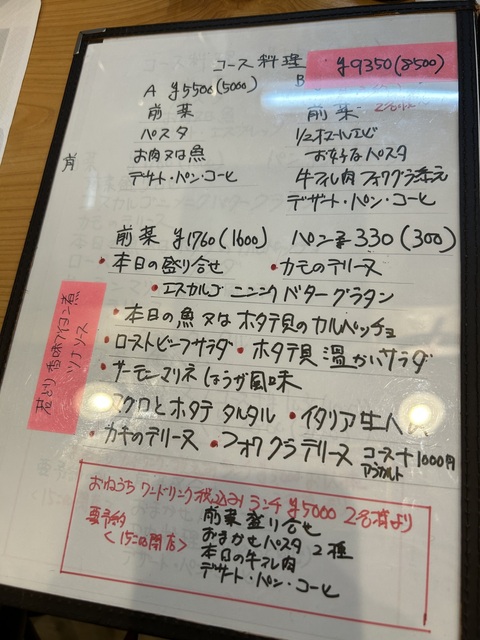 コース料理
A ¥5500(5000)
前菜
パスタ
お肉又は魚
デザート・パン・コーヒ
B ¥9350(8500)
前菜
1/2オマールエビ
お好きなパスタ
牛フィレ肉フォワグラ添え
デザート・パン・コーヒ
前菜 ¥1760(1600) パン¥330(300)
・本日の盛り合せ ・カモのテリーヌ
・エスカルゴ ニンニクバターグラタン
・本日の魚又はホタテ貝のカルペッチョ
・ローストビーフサラダ ・ホタテ貝温かいサラダ
・サーモンマリネ しょうが風味
マグロとホタテ タルタル ・イタリア生ハム
・カキのテリーヌ ・フォワグラテリーヌ コース+1000円
アラカルト
若どり香味
ソース
おねうち ワンドリンク税込み ランチ ¥5000 2名様より
要予約
<15:00閉店>
前菜盛り合せ
おまかせパスタ2種
本日の牛フィレ肉
デザート・パン・コーヒ